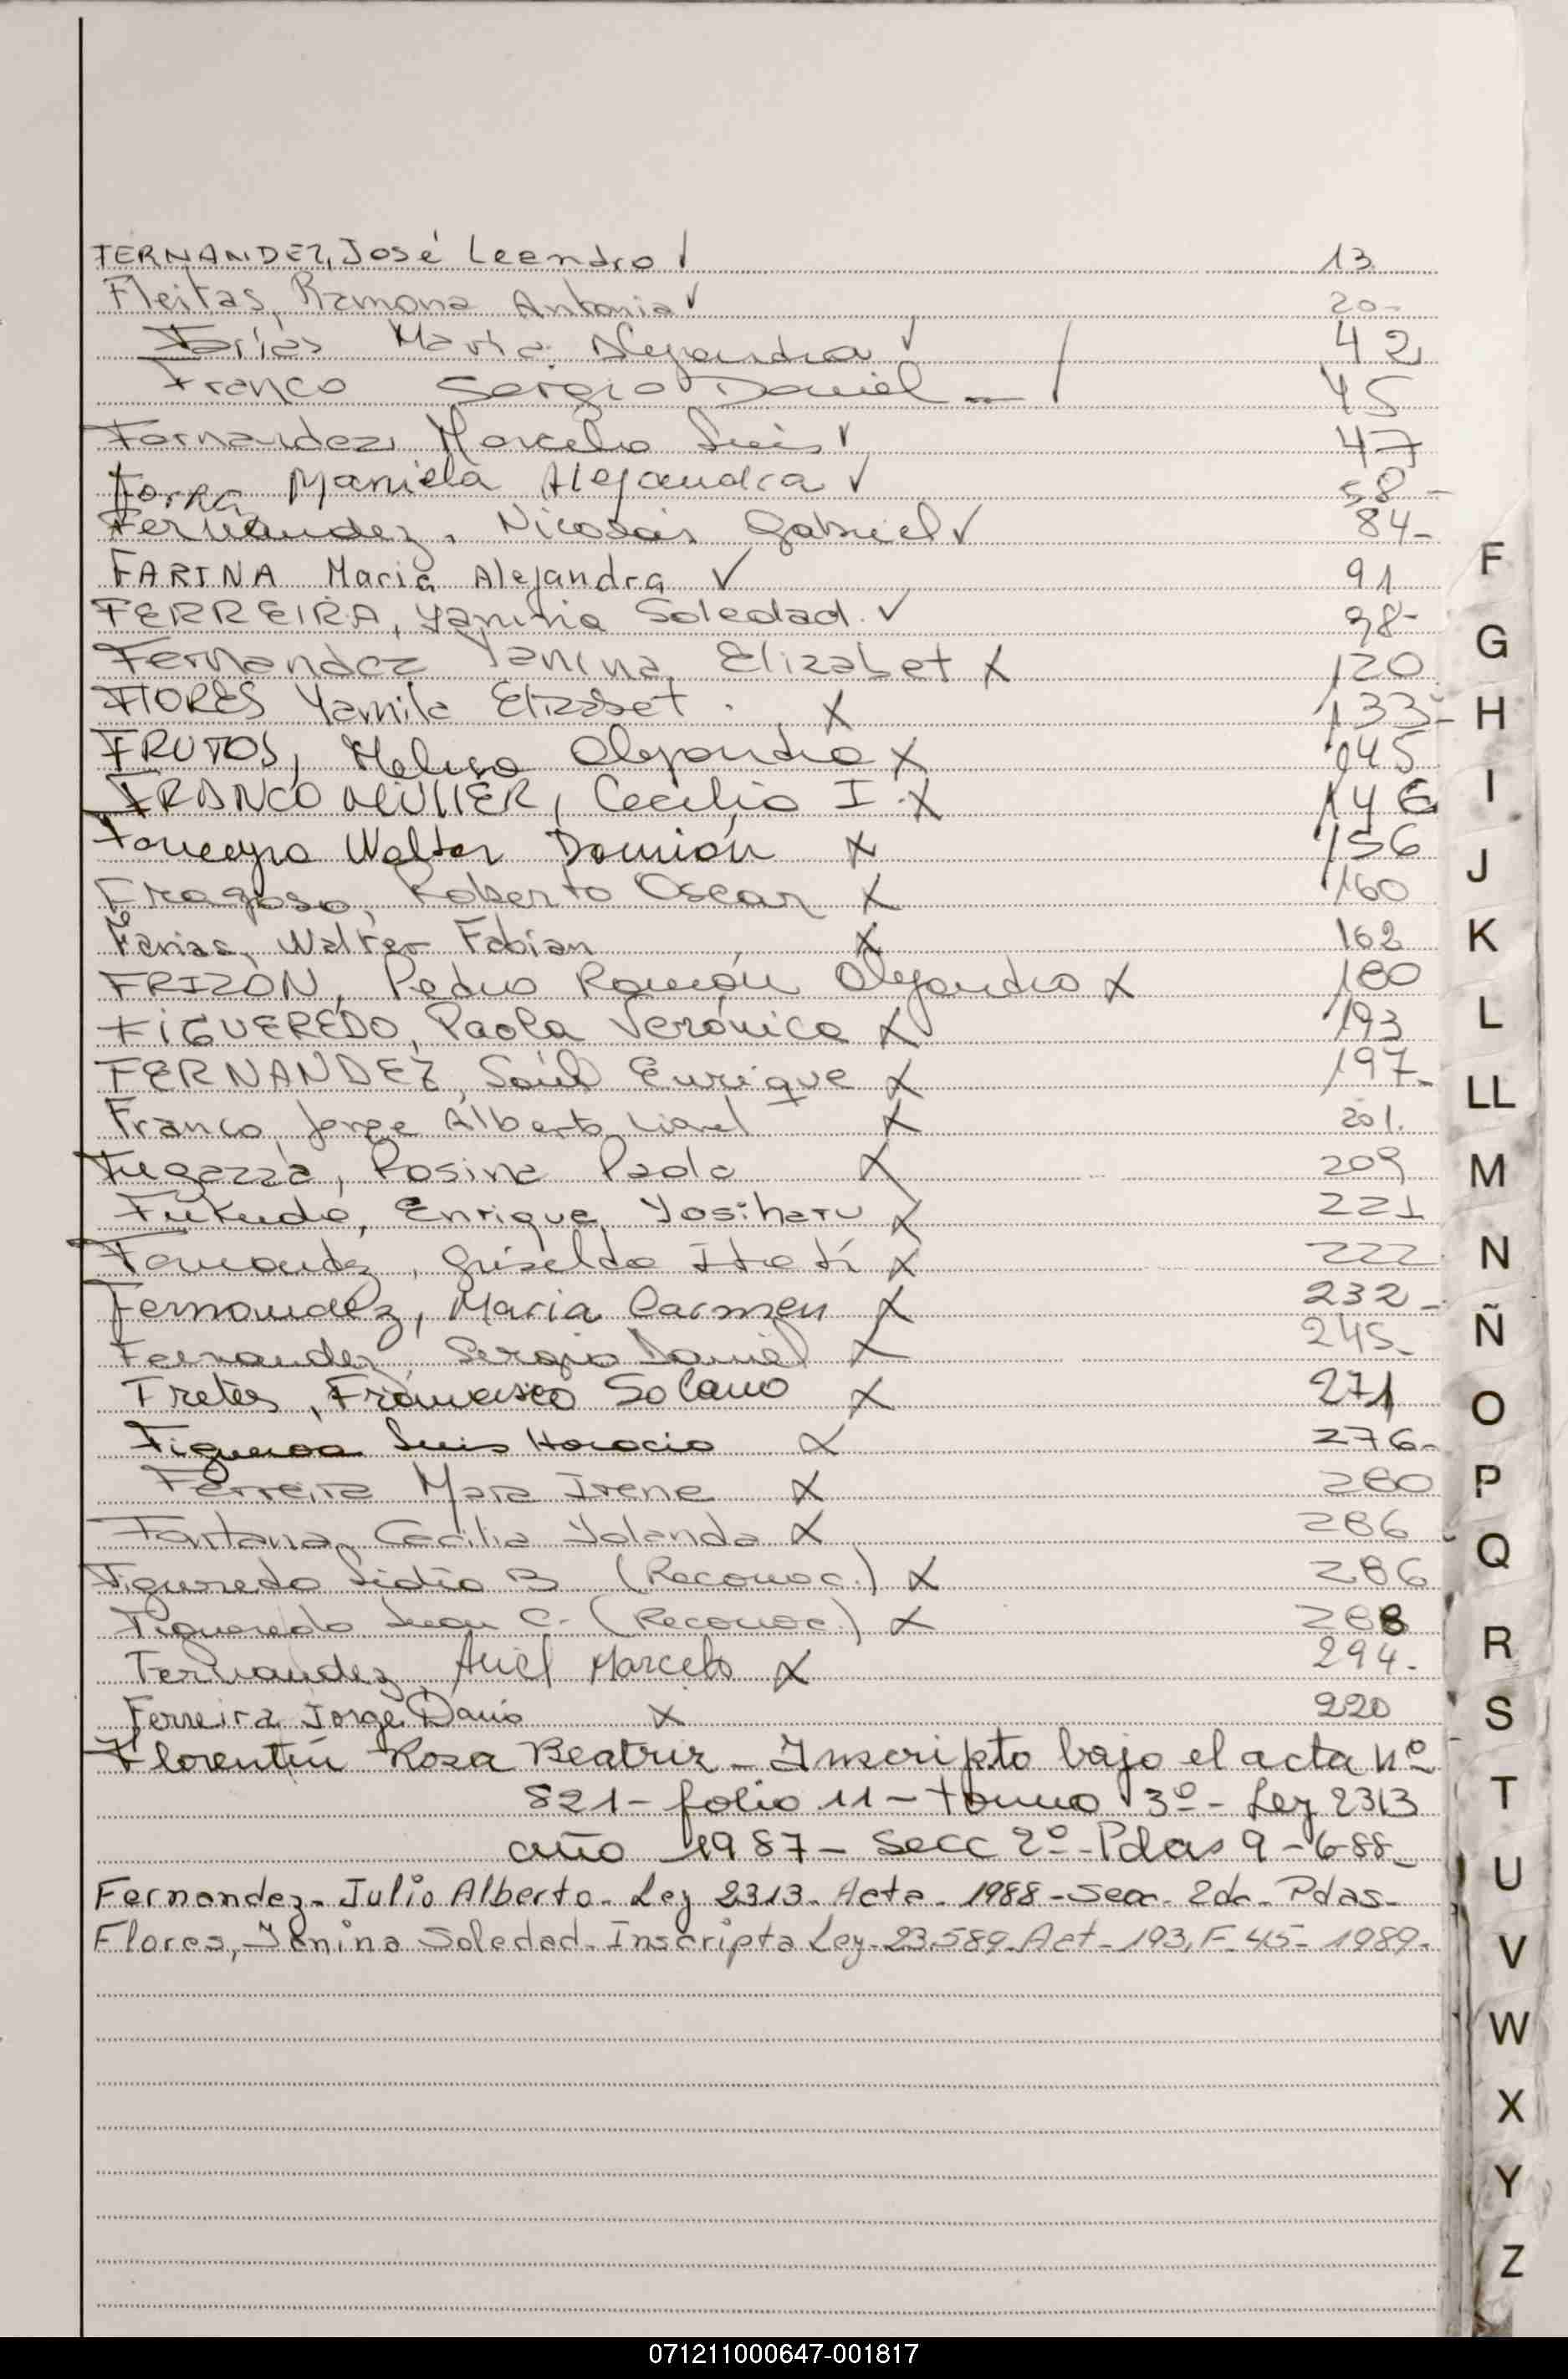 FERNANDEZ, José Leandro ✓ 13
Fleitas, Ramona Antonia ✓ 20-
Farías María Alejandra ✓ 42
Franco Sergio Daniel - / 45
Fernandez, Marcelo Luis ✓ 47
Mariela Alejandra ✓ 58-
Fernandez, Nicolás Gabriel ✓ 84-
FARINA Maria Alejandra ✓ 91
FERREIRA, Yanina Soledad. ✓ 98-
Fernandez Yanina Elizabet X 120
FLORES Yamila Elizabet. X 133-
FRUTOS, Melisa Alejandra X 145
FRANCO MULLER, Cecilia I. X 146
Walter Damián X 156
Fragoso, Roberto Oscar X 160
Farias, Walter Fabian X 162
FRIZÓN, Pedro Ramón Alejandro X 180
FIGUEREDO, Paola Verónica X 193
FERNANDEZ, Saúl Enrique X 197-
Franco, Jorge Alberto Lionel X 201.
Fugazza, Rosina Paola X 209
Fukuda, Enrique Yosiharu X 221
Fernandez, Griselda Itatí X 222
Fernandez, Maria Carmen X 232-
Fernandez, Sergio Daniel X 245-
Fretes, Francisco Solano X 271
Figueroa Luis Horacio X 276-
Ferreira Mara Irene X 280
Fontana, Cecilia Yolanda X 286
Figueredo Lidia B (Reconoc.) X 286
Figueredo Juan C. (Reconoc.) X 288
Fernandez Ariel Marcelo X 294-
Ferreira Jorge Darío X 220
Florentín Rosa Beatriz - Inscripto bajo el acta Nº
821 - folio 11 - tomo 3º - Ley 2313
año 1987 - Secc 2º - Pdas 9-6-88-
Fernandez - Julio Alberto - Ley 2313 - Acta - 1988 - Secc - 2da - Pdas -
Flores, Yanina Soledad - Inscripta Ley - 23.589 - Act - 193, F - 45 - 1989 -
F
G
H
I
J
K
L
LL
M
N
Ñ
O
P
Q
R
S
T
U
V
W
X
Y
Z
071211000647-001817